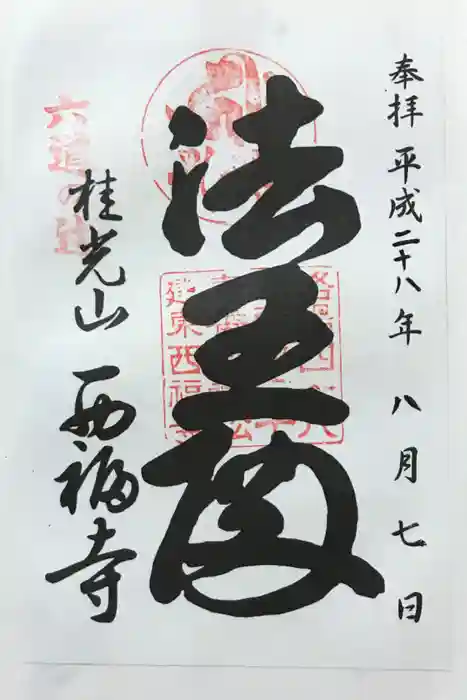 奉拝 平成二十八年 八月七日
法王
六道の辻
桂光山 西福寺